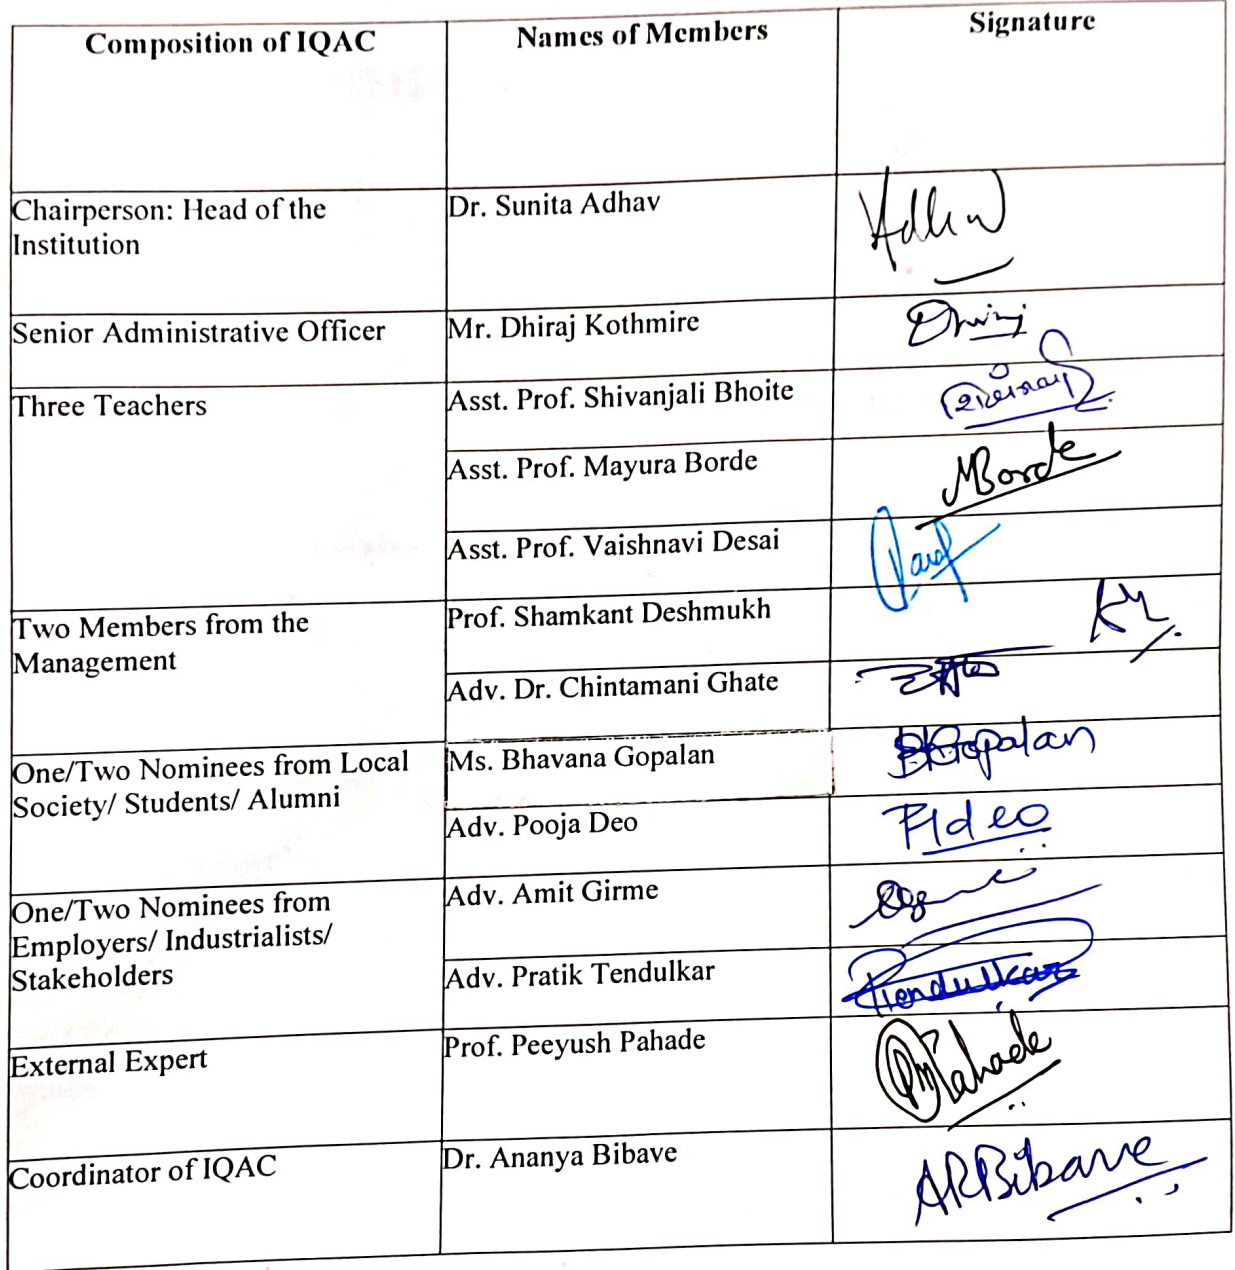 Composition of IQAC
Names of Members
Signature
Chairperson: Head of the
Institution
Dr. Sunita Adhav
Senior Administrative Officer
Mr. Dhiraj Kothmire
Three Teachers
Asst. Prof. Shivanjali Bhoite
Asst. Prof. Mayura Borde
MBorde
Asst. Prof. Vaishnavi Desai
Two Members from the
Management
Prof. Shamkant Deshmukh
Adv. Dr. Chintamani Ghate
One/Two Nominees from Local
Society/ Students/ Alumni
Ms. Bhavana Gopalan
Adv. Pooja Deo
One/Two Nominees from
Employers/ Industrialists/
Stakeholders
Adv. Amit Girme
Adv. Pratik Tendulkar
External Expert
Prof. Peeyush Pahade
Coordinator of IQAC
Dr. Ananya Bibave
ARBibave